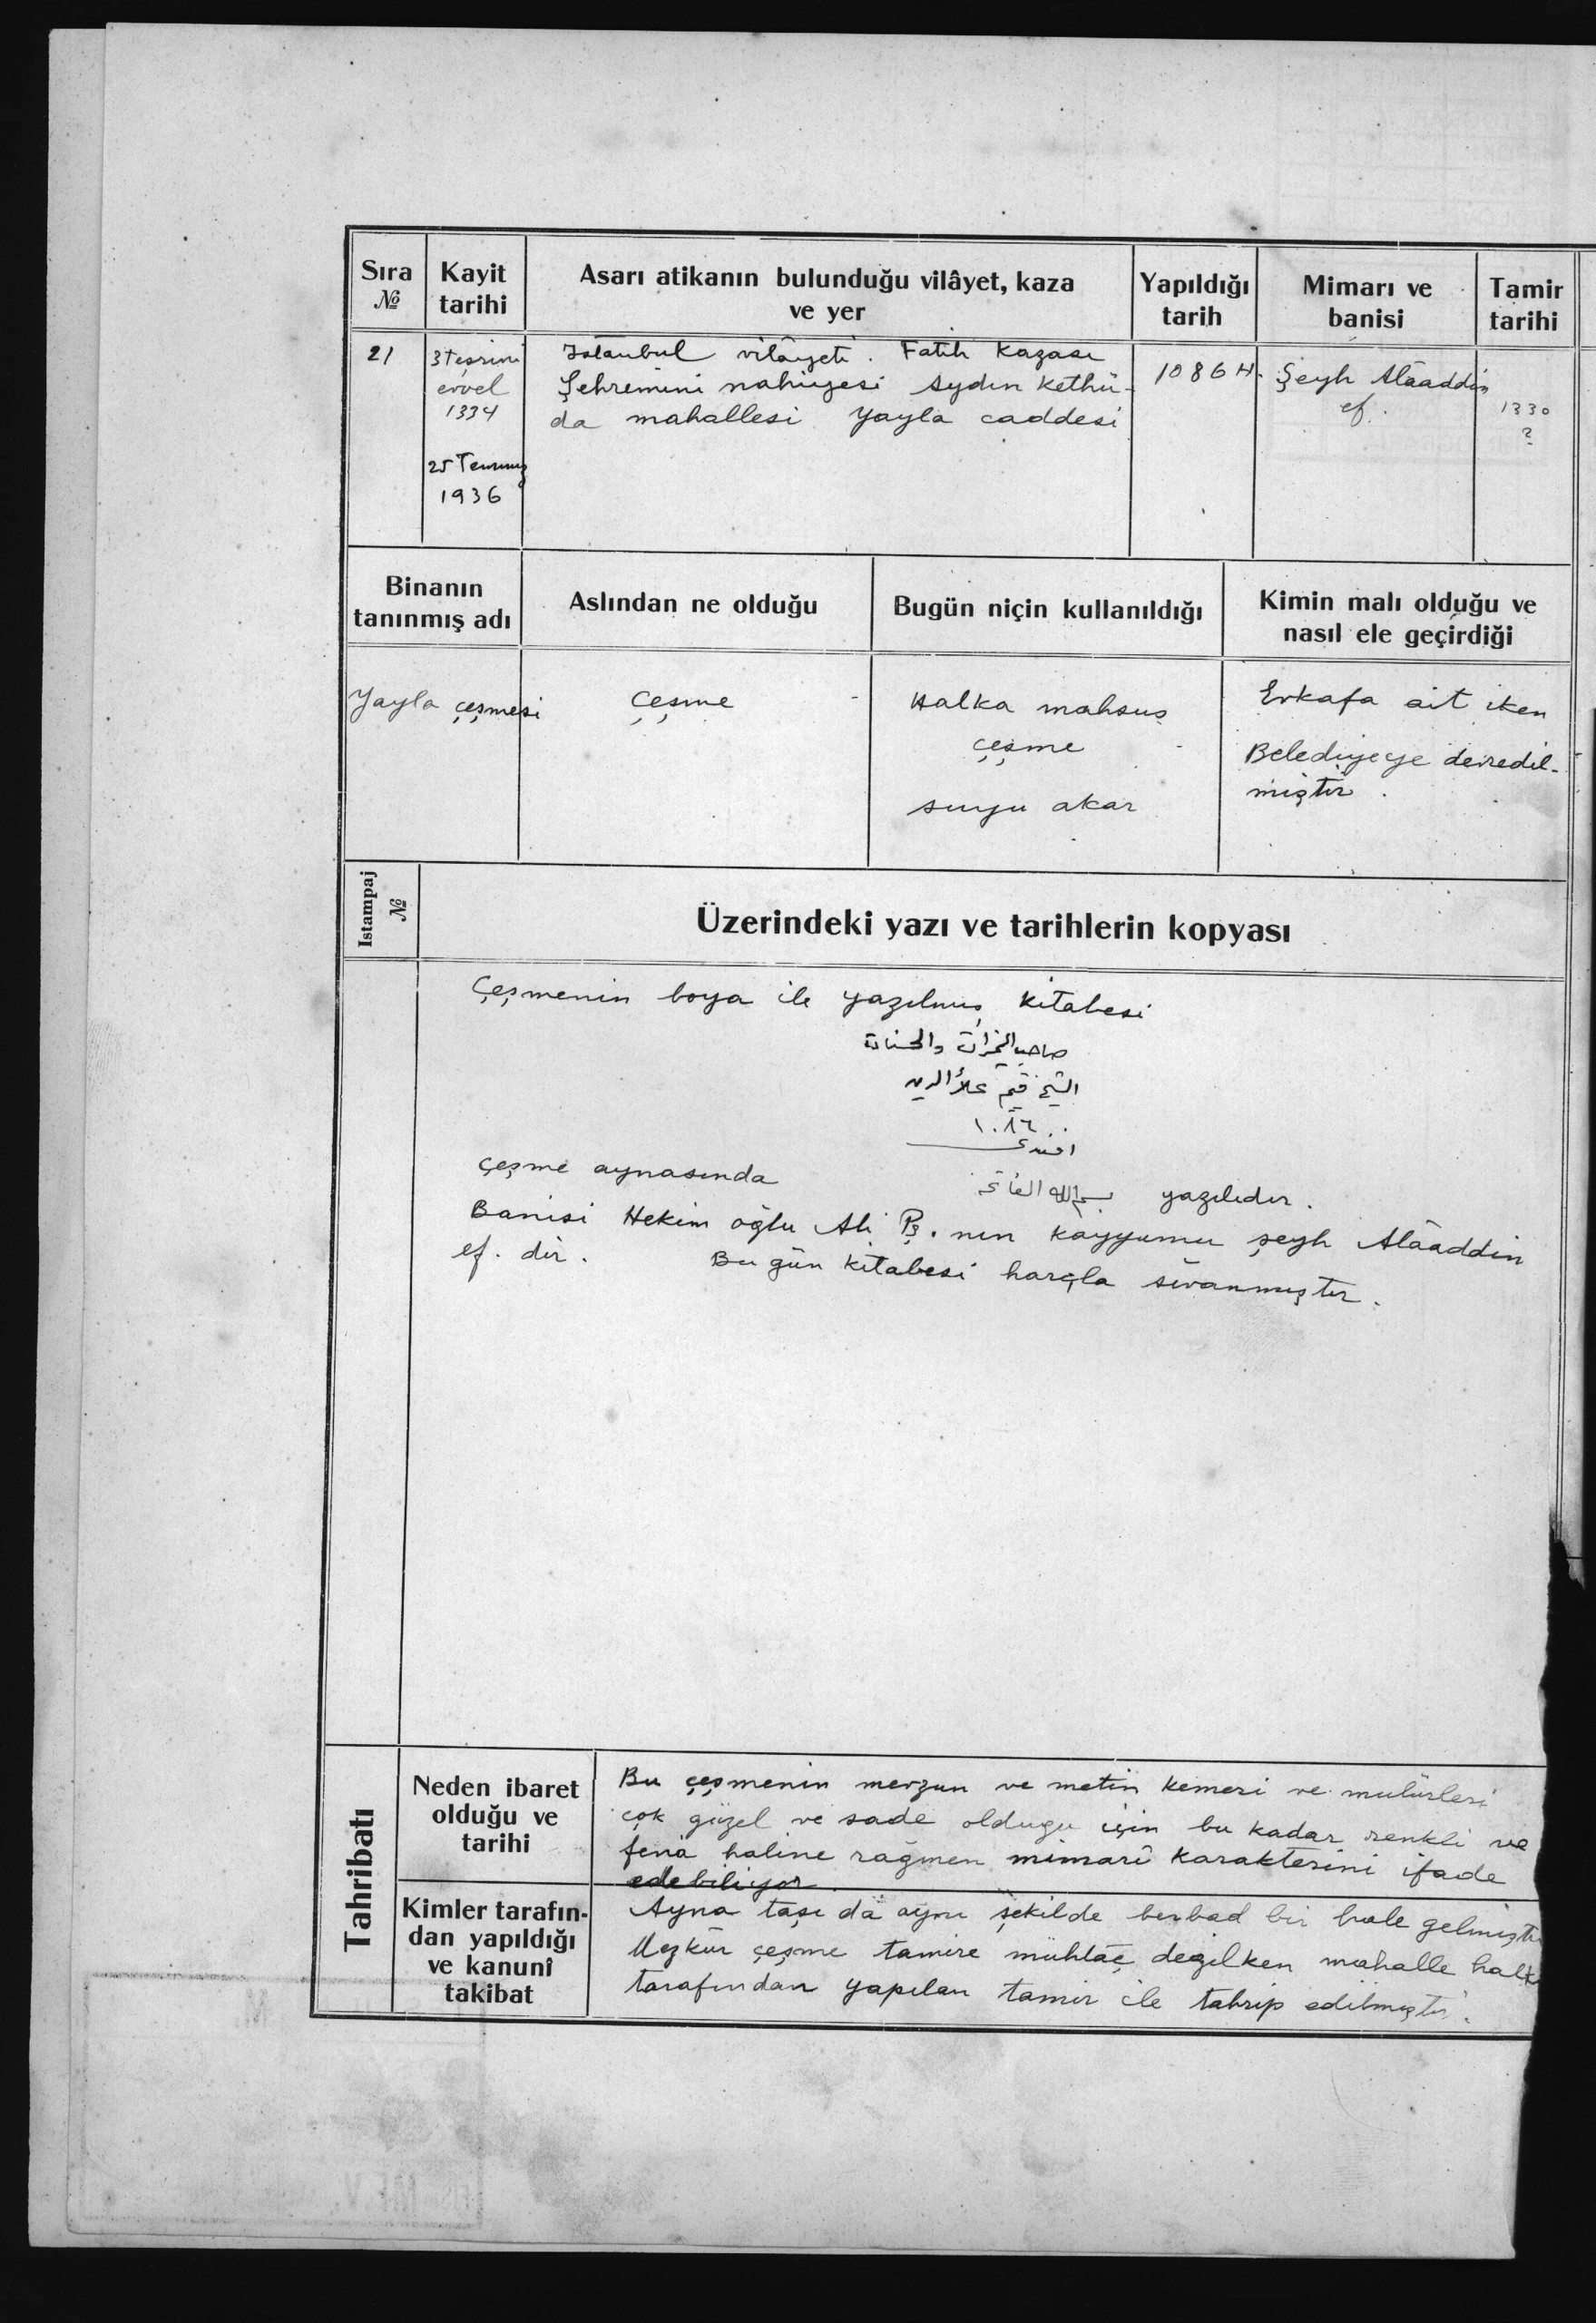 Sıra № Kayit tarihi Asarı atikanın bulunduğu vilâyet, kaza ve yer Yapıldığı tarih Mimarı ve banisi Tamir tarihi
21
3 teşrini
evvel
1334
25 Temmuz
1936
Istanbul vilâyeti. Fatih Kazası
Şehremini nahiyesi Aydın Kethü-
da mahallesi Yayla caddesi
1086 H.
Şeyh Alâaddin
ef.
1330
?
Binanın tanınmış adı
Aslından ne olduğu
Bugün niçin kullanıldığı
Kimin malı olduğu ve
nasıl ele geçirdiği
Yayla çeşmesi
Çeşme
Halka mahsus
çeşme
suyu akar
Evkafa ait iken
Belediyeye devredil-
miştir.
Istampaj №
Üzerindeki yazı ve tarihlerin kopyası
Çeşmenin boya ile yazılmış kitabesi
صاحب الخيرات والحسنات
الشيخ قيم علاء الدين
١٠٨٦
افندى
Çeşme aynasında بسم الله الفاتحه yazılıdır.
Banisi Hekim oğlu Ali Pş. nın kayyumu şeyh Alâaddin
ef. dir. Bu gün kitabesi harçla sıvanmıştır.
Tahribatı
Neden ibaret
olduğu ve
tarihi
Bu çeşmenin mevzun ve metin kemeri ve mulürleri
çok güzel ve sade olduğu için bu kadar renkli ve
fena haline rağmen mimarî karakterini ifade
edebiliyor.
Kimler tarafın-
dan yapıldığı
ve kanunî
takibat
Ayna taşı da aynı şekilde berbad bir hale gelmişti
Mezkûr çeşme tamire mühtaç değilken mahalle halk
tarafından yapılan tamir ile tahrip edilmiştir.